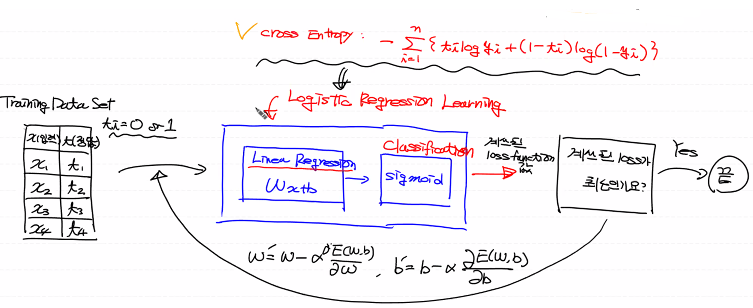 ✓ cross Entropy : - Σ_{i=1}^{n} { ti log yi + (1-ti) log (1-yi) }
Logistic Regression Learning
Training Data Set
ti=0 or 1
x(입력) t(정답)
x₁ t₁
x₂ t₂
x₃ t₃
x₄ t₄
Linear Regression
Wx+b
Classification
sigmoid
계산된
loss function
계산된 loss가
최소인가요?
Yes
끝
w′ = w - α ∂E(w,b)/∂w , b′ = b - α ∂E(w,b)/∂b